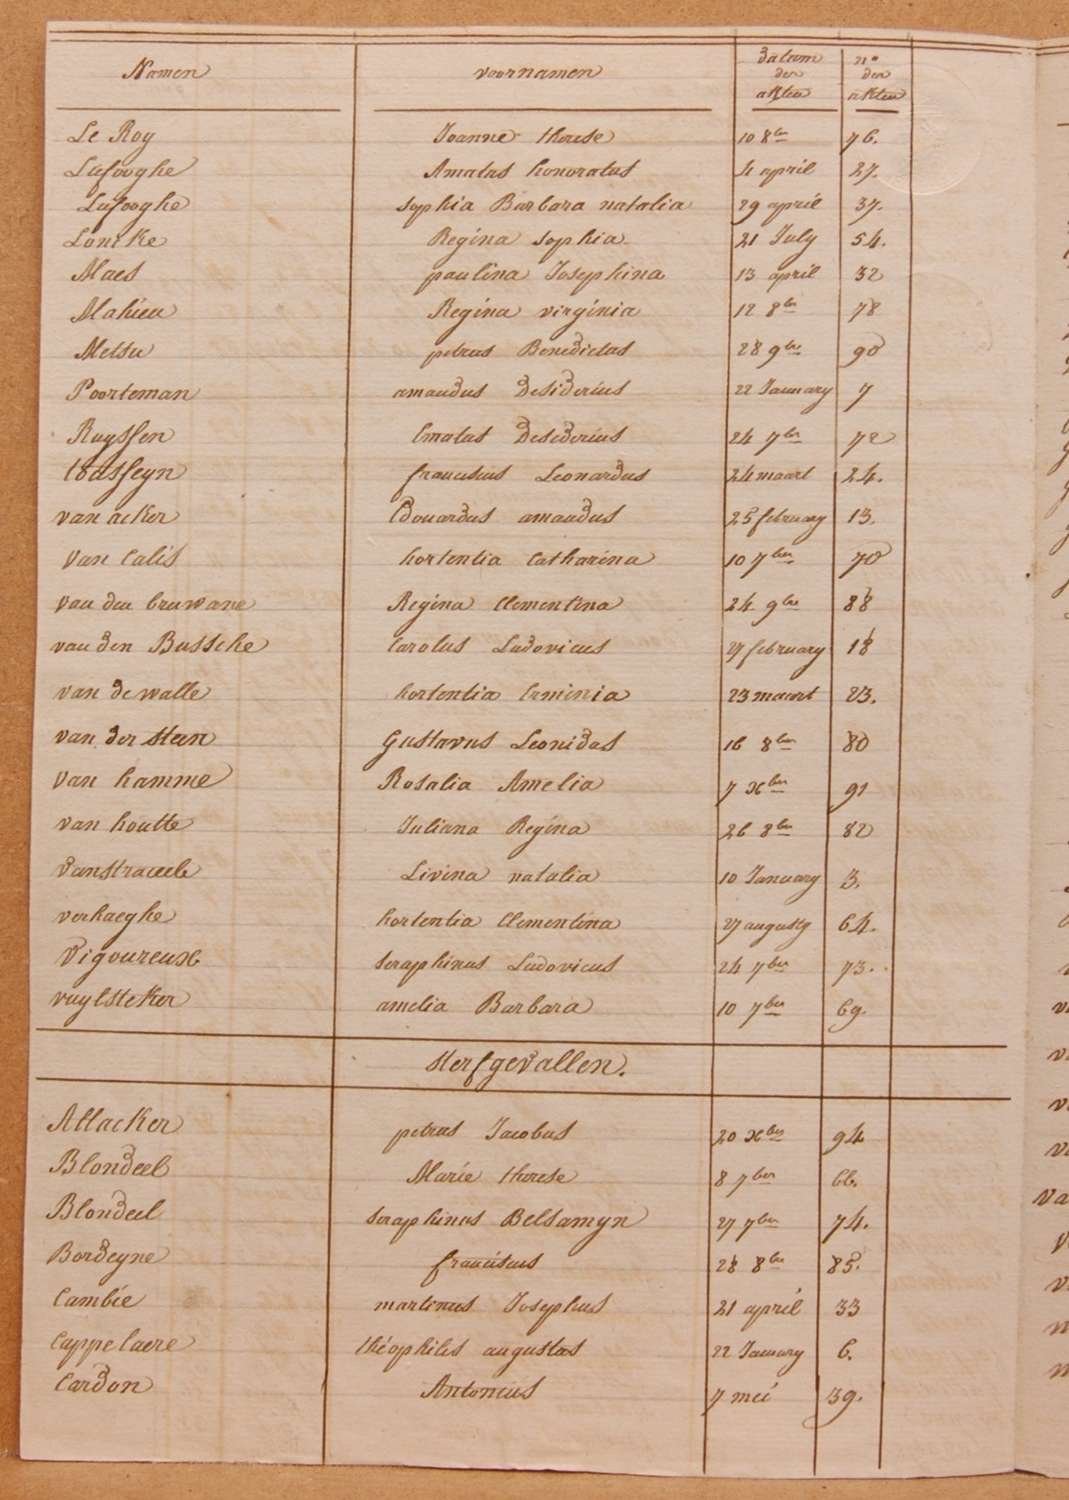 Namen voornamen datum der akten n° der akten
Le Roy Joanne therese 10 8ber 76.
Lafooghe Amatus honoratus 4 april 27.
Lafooghe sophia Barbara natalia 29 april 37.
Loncke Regina sophia 21 July 54.
Maes paulina Josephina 13 april 32
Mahieu Regina virginia 12 8ber 78
Metsu petrus Benedictus 28 9bre 90
Poorteman amandus Desiderius 22 January 7
Ruyssen Amatus Desederius 24 7ber 72
franciscus Leonardus 24 maart 24.
van acker Edouardus amandus 25 february 13.
van Calis hortentia Catharina 10 7ber 70
van den bruwane Regina Clementina 24 9bre 88
van den Bussche Carolus Ludovicus 27 february 18
van de walle hortentia Erminia 23 maart 23.
van der steen Gustavus Leonidas 16 8ber 80
van hamme Rosalia Amelia 7 xber 91
van houtte Juliana Regina 26 8ber 82
vanstraceele Livina natalia 10 January 3.
verhaeghe hortentia Clementina 27 augusty 64.
Vigoureux seraphinus Ludovicus 24 7ber 73.
vuylsteker amelia Barbara 10 7ber 69.
sterfgevallen.
Allacker petrus Jacobus 20 xber 94
Blondeel Marie therese 8 7ber 66.
Blondeel seraphinus Belsamyn 27 7ber 74.
Bordeyne franciscus 28 8bre 85.
Cambie martinus Josephus 21 april 33
Cappelaere théophilis augustus 22 January 6.
Cardon Antonius 7 meï 39.